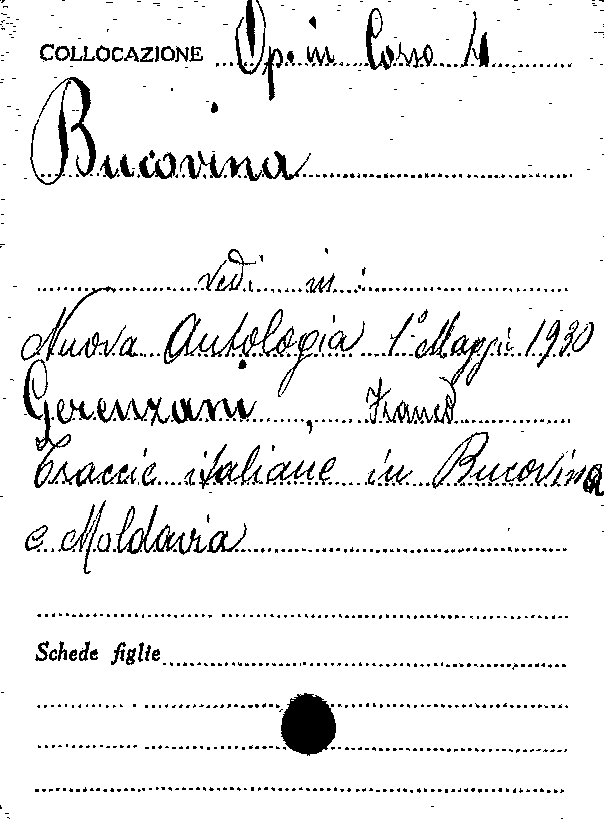 COLLOCAZIONE Op. in Corso 4
Bucovina
vedi in :
Nuova Antologia 1° Maggio 1930
Gerenzani, Franco
Traccie italiane in Bucovina
e Moldavia
Schede figlie